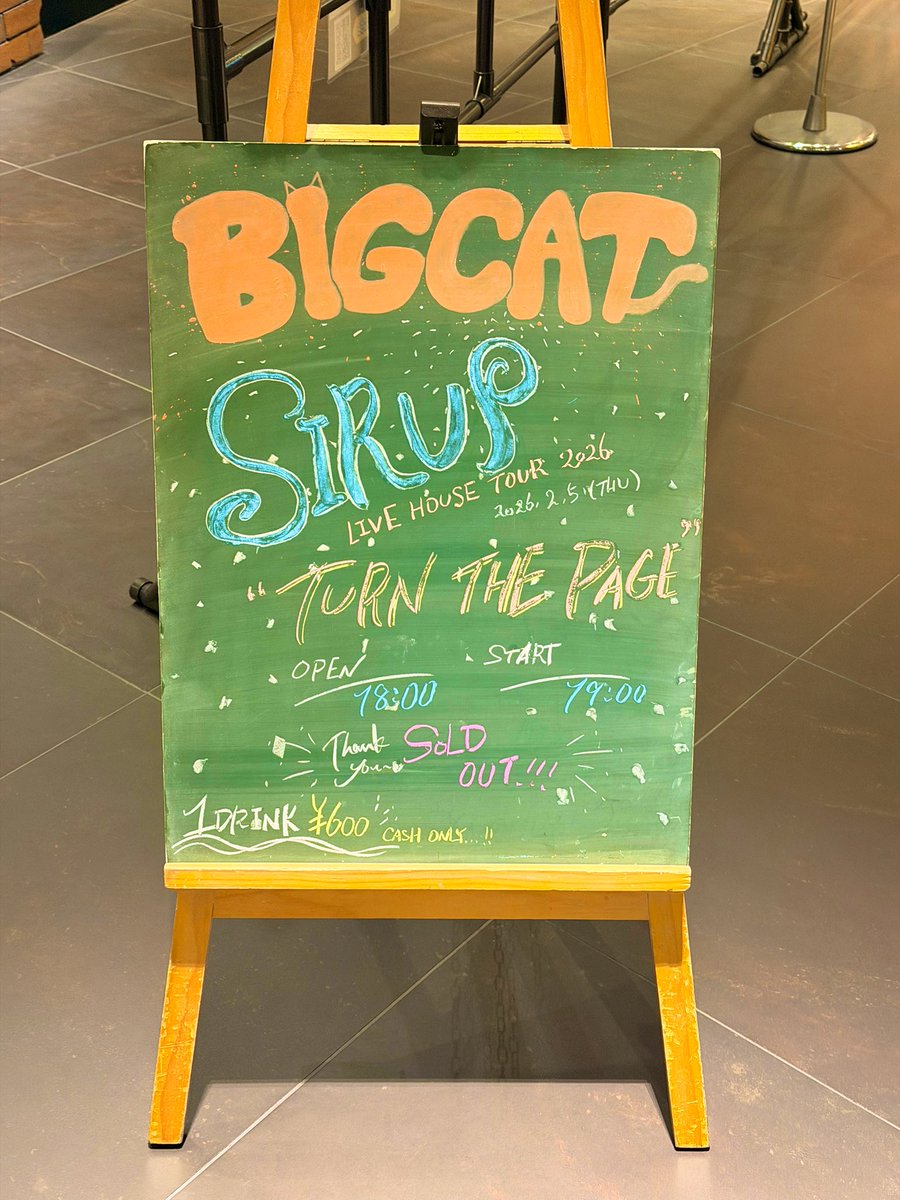 BIGCAT
SIRUP
LIVE HOUSE TOUR 2026
2026. 2. 5. (THU)
"TURN THE PAGE"
OPEN START
18:00 19:00
Thank you~ SOLD OUT!!!
1DRINK ¥600 CASH ONLY...!!